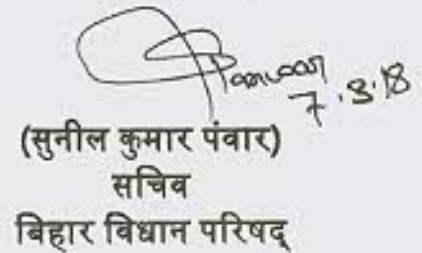 Panwar
7.3.18
(सुनील कुमार पंवार)
सचिव
बिहार विधान परिषद्